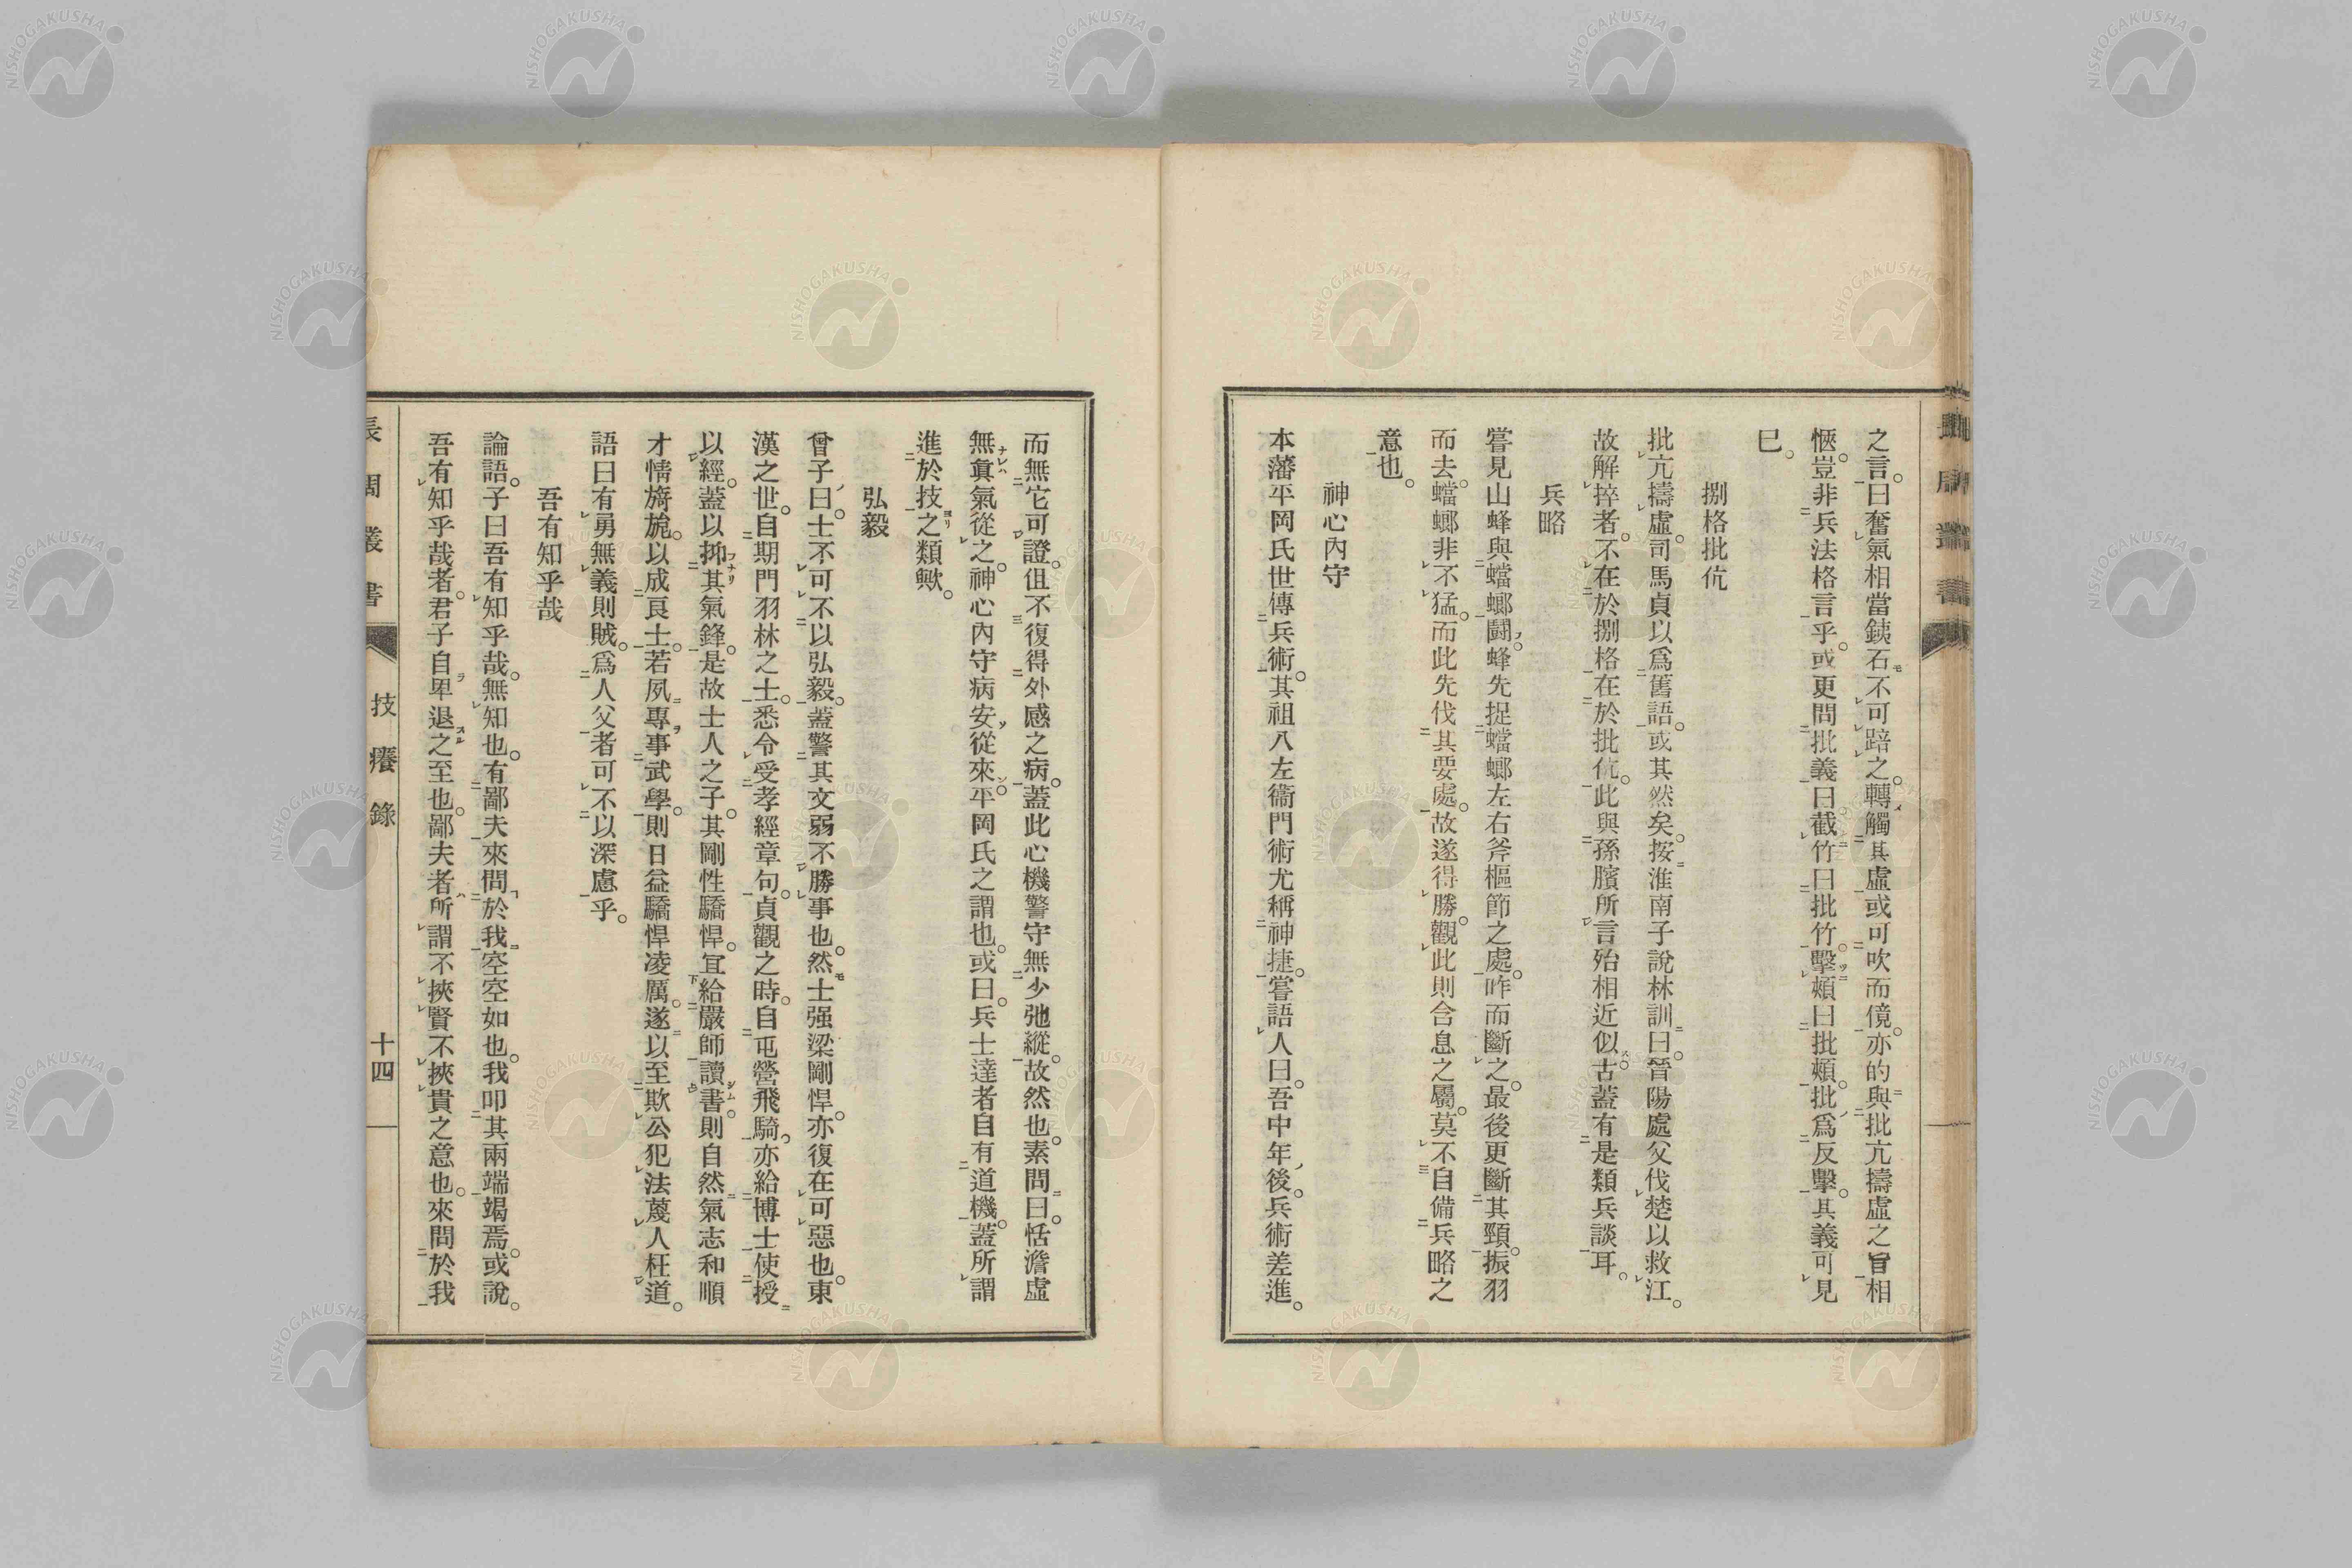 之言。曰奮氣相當銕石不可踣之。轉觸其虛或可吹而僨。亦的與批亢擣虛之旨相
愜。豈非兵法格言乎。或更問批義曰截竹曰批竹。擊頰曰批頰。批爲反擊。其義可見
已。
捌格批伉
批亢擣虛。司馬貞以爲舊語。或其然矣。按淮南子說林訓曰。晉陽處父伐楚以救江。
故解捽者。不在於捌格在於批伉。此與孫臏所言殆相近似。古蓋有是類兵談耳。
兵略
嘗見山蜂與蟷螂鬪。蜂先捉蟷螂左右斧樞節之處。咋而斷之。最後更斷其頸。振羽
而去。蟷螂非不猛。而此先伐其要處。故遂得勝。觀此則含息之屬。莫不自備兵略之
意也。
神心內守
本藩平岡氏世傳兵術。其祖八左衞門術尤稱神捷。嘗語人曰。吾中年後。兵術差進。
而無它可證。但不復得外感之病。蓋此心機警守無少弛縱。故然也。素問曰。恬澹虛
無眞氣從之。神心內守病安從來。平岡氏之謂也。或曰。兵士達者自有道機。蓋所謂
進於技之類歟。
弘毅
曾子曰。士不可不以弘毅。蓋警其文弱不勝事也。然士强梁剛悍。亦復在可惡也。東
漢之世。自期門羽林之士。悉令受孝經章句。貞觀之時。自屯營飛騎。亦給博士使授
以經。蓋以抑其氣鋒。是故士人之子。其剛性驕悍。宜給嚴師讀書。則自然氣志和順
才情旖旎。以成良士。若夙專事武學。則日益驕悍凌厲。遂以至欺公犯法蔑人枉道。
語曰有勇無義則賊。爲人父者可不以深慮乎。
吾有知乎哉
論語。子曰吾有知乎哉。無知也。有鄙夫來問於我空空如也。我叩其兩端竭焉。或說。
吾有知乎哉者。君子自卑退之至也。鄙夫者所謂不挾賢不挾貴之意也。來問於我
長周叢書
技癢錄
十四
NISHOGAKUSHA